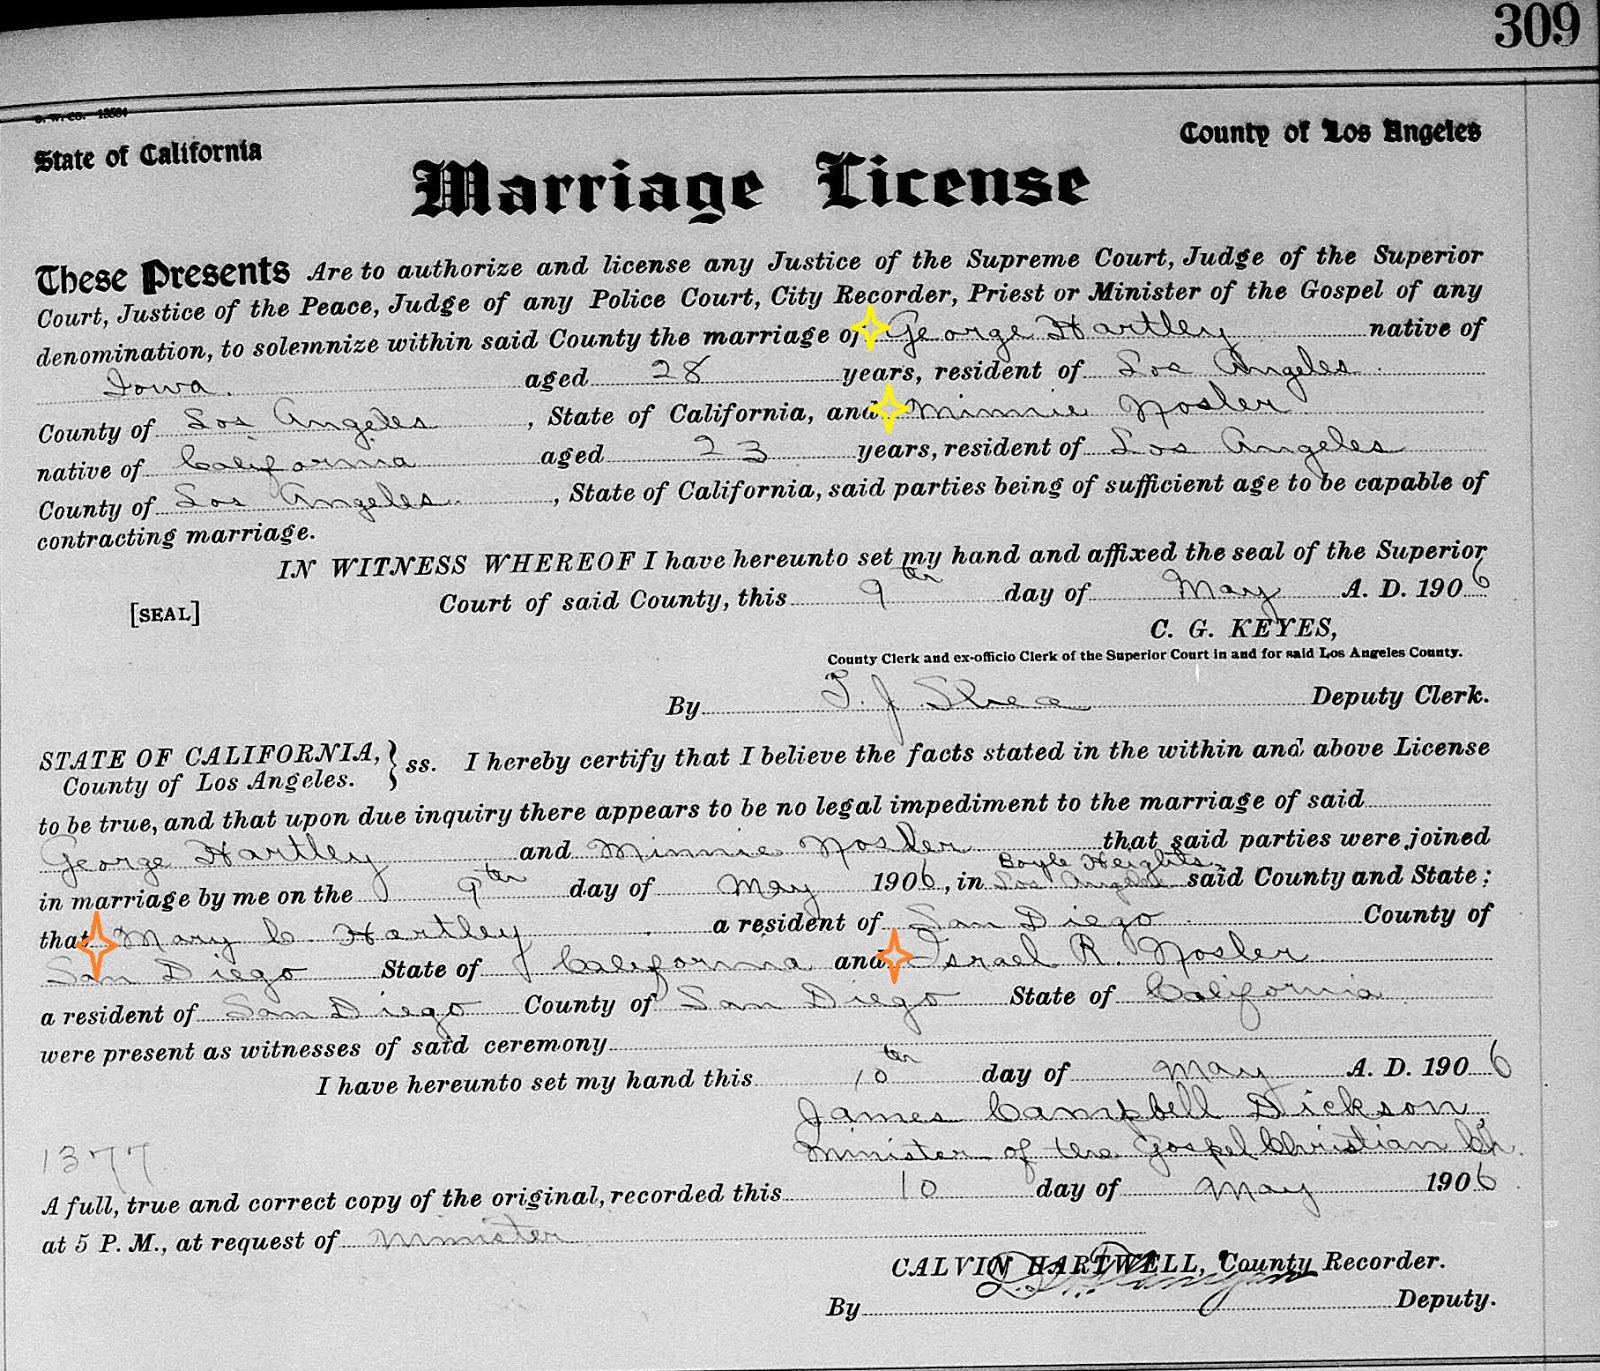 309
State of California
County of Los Angeles
Marriage License
These Presents Are to authorize and license any Justice of the Supreme Court, Judge of the Superior
Court, Justice of the Peace, Judge of any Police Court, City Recorder, Priest or Minister of the Gospel of any
denomination, to solemnize within said County the marriage of George Hartley native of
Iowa. aged 28 years, resident of Los Angeles
County of Los Angeles, State of California, and Minnie Nosler
native of California aged 23 years, resident of Los Angeles
County of Los Angeles, State of California, said parties being of sufficient age to be capable of
contracting marriage.
IN WITNESS WHEREOF I have hereunto set my hand and affixed the seal of the Superior
[SEAL] Court of said County, this 9th day of May A. D. 1906
C. G. KEYES,
County Clerk and ex-officio Clerk of the Superior Court in and for said Los Angeles County.
By T. J. Shea Deputy Clerk.
STATE OF CALIFORNIA, } ss. I hereby certify that I believe the facts stated in the within and above License
County of Los Angeles.
to be true, and that upon due inquiry there appears to be no legal impediment to the marriage of said
George Hartley and Minnie Nosler that said parties were joined
Boyle Heights
in marriage by me on the 9th day of May 1906, in Los Angeles said County and State;
that Mary C. Hartley a resident of San Diego County of
San Diego State of California and Israel R. Nosler
a resident of San Diego County of San Diego State of California
were present as witnesses of said ceremony
I have hereunto set my hand this 10th day of May A. D. 1906
James Campbell Dickson
Minister of the Gospel Christian Ch.
1377
A full, true and correct copy of the original, recorded this 10 day of May 1906
at 5 P. M., at request of Minister
CALVIN HARTWELL, County Recorder.
By Deputy.